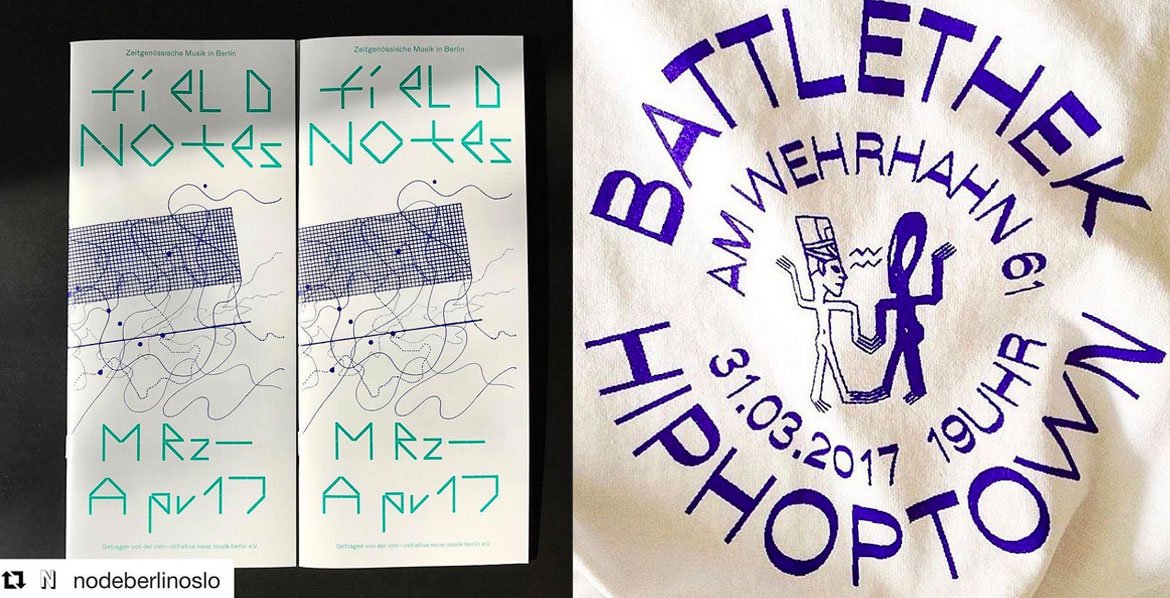 Zeitgenössische Musik in Berlin
fiELD
NOtes
MRz—
Apr17
Getragen von der inm—initiative neue musik berlin e.V.
Zeitgenössische Musik in Berlin
fiELD
NOtes
MRz—
Apr17
Getragen von der inm—initiative neue musik berlin e.V.
BATTLETHEK
AM WEHRHAHN 61
31.03.2017 19UHR
HIPHOPTOWN
N nodeberlinoslo